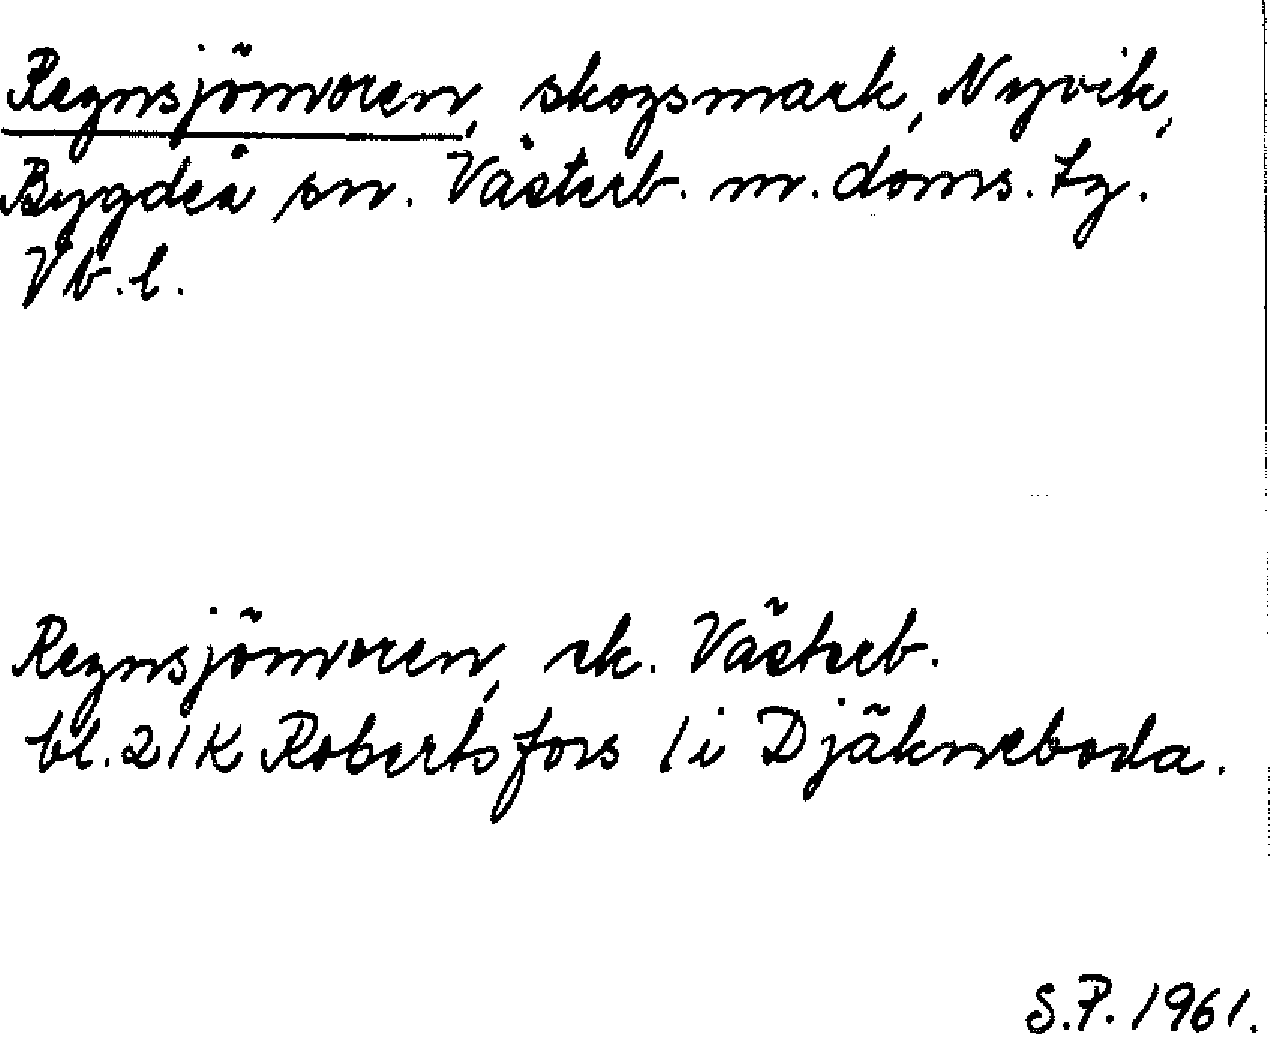 Regnsjömoren, skogsmark, Nyvik,
Bygdeå sn. Västerb. m. doms. tg.
Vb. l.
Regnsjömoren, ek. Västerb.
bl. 21K Robertsfors / i Djäkneboda.
S.P. 1961.